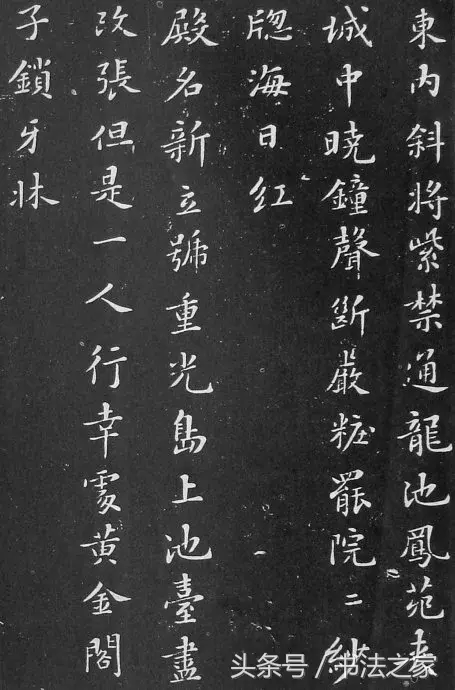 東內斜將紫禁通龍池鳳苑夾
城中曉鐘聲斷嚴粧罷院二紗
牕海日紅
殿名新立號重光島上池臺盡
改張但是一人行幸處黃金閣
子鎖牙牀
头条号 / 书法之家